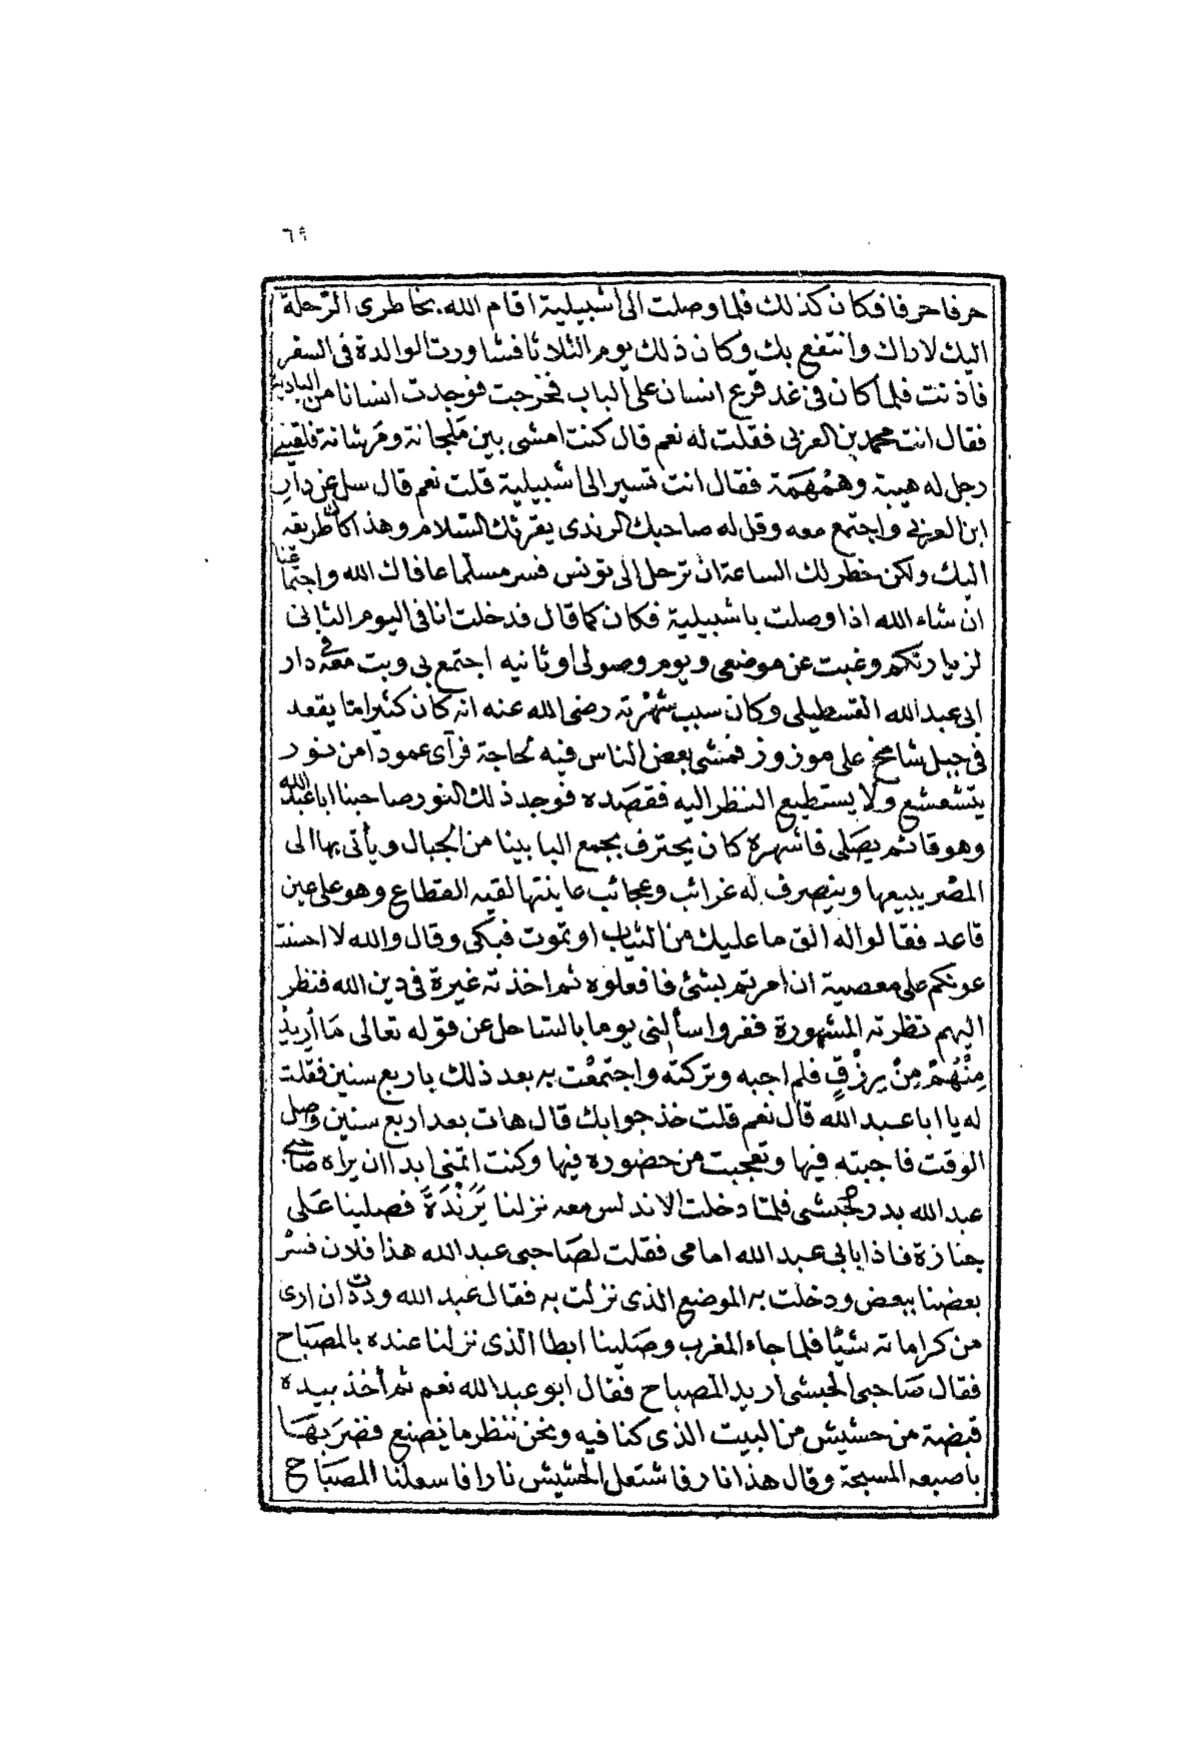 ٦٩
حرفا حرفا فكان كذلك فلما وصلت الى اشبيلية اقام الله بخاطرى الرّحلة
اليك لاراك وانتفع بك وكان ذلك يوم الثلاثا فشاورت الوالدة فى السفر
فاذنت فلما كان فى غد قرع انسان على الباب فخرجت فوجدت انسانا من البادية
فقال انت محمد بن العربى فقلت له نعم قال كنت امشى بين مَلجانة ومَرشانة فلقينى
رجل له هيبة وهمْهَمَة فقال انت تسير الى اشبيلية قلت نعم قال سل عن دار
ابن العربى واجتمع معه وقل له صاحبك الرندى يقرئك السّلام وهذا كان طريقه
اليك ولكن خطر لك الساعة ان ترحل الى تونس فسر مسلّما عافاك الله واجتماعنا
ان شاء الله اذا وصلت باشبيلية فكان كما قال فدخلت انا فى اليوم الثانى
لزيارتكم وغبت عن موضعى ويوم وصولى او ثانيه اجتمع بى وبت معه فى دار
ابى عبد الله القسطيلى وكان سبب شهْرته رضى الله عنه انه كان كثيرا ما يقعد
فى جبل شامخ على موزوز فمشى بعض الناس فيه لحاجة فرآى عمودًا من نور
يتشعشع ولا يستطيع النظر اليه فقصَده فوجد ذلك النور صاحبنا ابا عبد الله
وهو قائم يصَلى فاشهره كان يحترف بجمع البابينا من الجبال ويأتى بها الى
المصْر يبيعها وينصرف له غرائب وعجائب عاينتها لقيه القطاع وهو على عين
قاعد فقالوا له الق ما عليك من الثياب او تموت فبكى وقال والله لا احسنت
عونكم على معصية ان امرتم بشئ فافعلوه ثم اخذته غيرة فى دين الله فنظر
اليهم نظرته المشهورة ففروا سألنى يوما بالساحل عن قوله تعالى مَا أُرِيدُ
مِنْهُمْ مِنْ رِزْقٍ فلم اجبه وتركته واجتمعْت به بعد ذلك باربع سنين فقلت
له يا ابا عبد الله قال نعم قلت خذ جوابك قال هات بعد اربع سنين وصل
الوقت فاجبته فيها وتعجبت من حضوره فيها وكنت اتمنى ابدا ان يراه صاحبى
عبد الله بدر حبشى فلمّا دخلت الاندلس معه نزلنا بِرُنْدَةَ فصلينا عَلى
جنازة فاذا بابى عبد الله امامى فقلت لصَاحبى عبد الله هذا فلان فسُرْ
بعضنا ببعض ودخلت به الموضع الذى نزلت به فقال عبد الله وددت ان ارى
من كراماته شيْئا فلما جاء المغرب وصَلينا ابطا الذى نزلنا عنده بالمصْبَاح
فقال صَاحبى الحبشى اريد المصباح فقال ابو عبد الله نعم ثم أخذ بيده
قبضة من حشيش من البيت الذى كنا فيه ونحن ننظر ما يَصنع فضَرَبهَا
باصبعه المسبحة وقال هذا نار فاشتعل الحشيش نارا فاسعلنا المصَبَاح